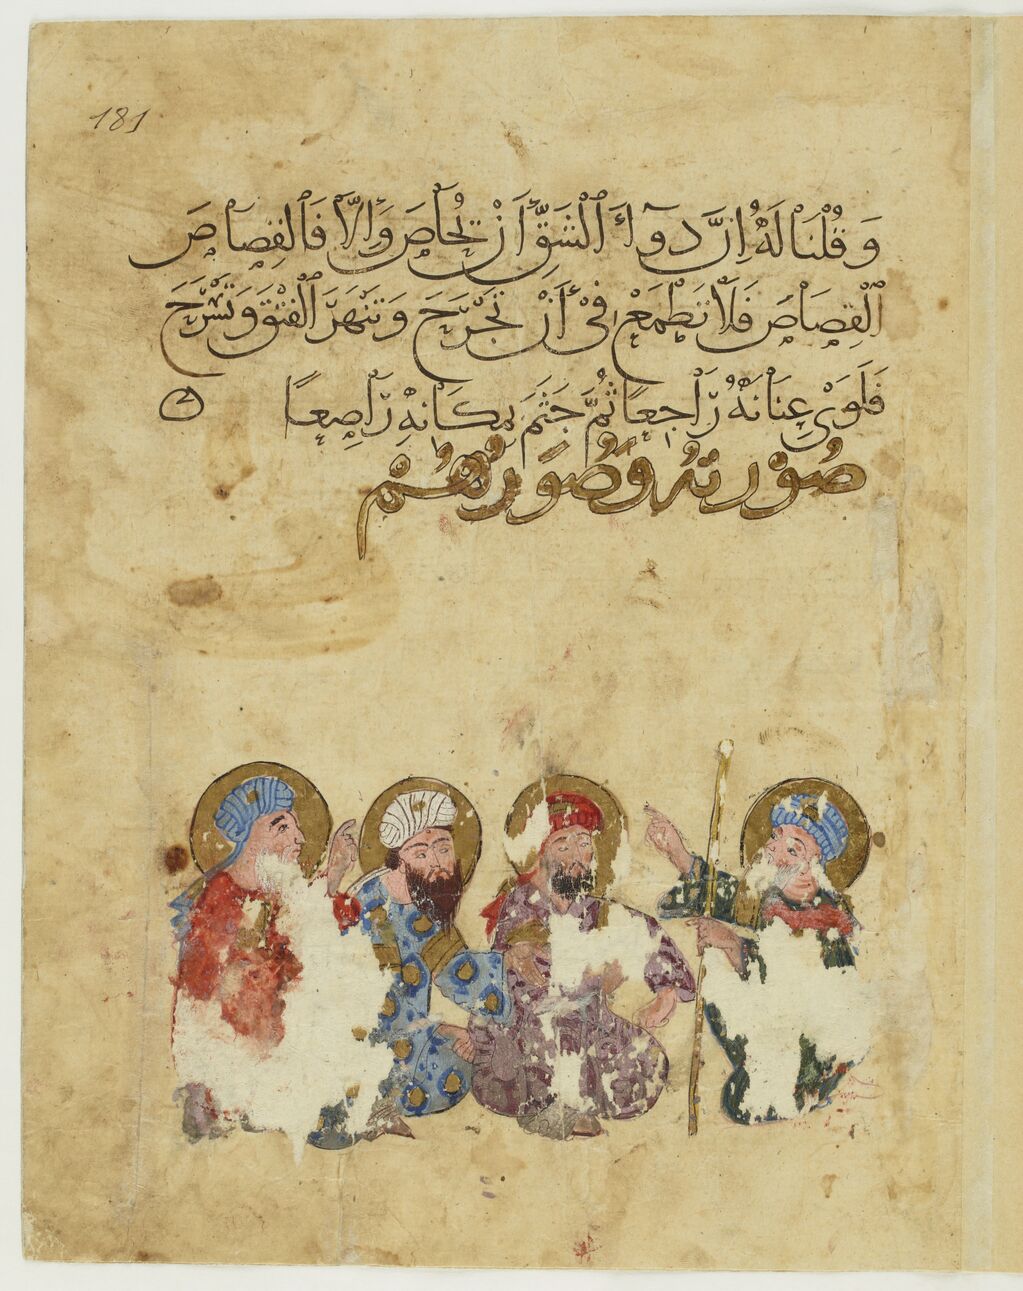 181
وَقُلْنَا لَهُ اِنَّ دَوَآءَ الشَّقِّ اَنْ يُحَاصَ وَاِلَّا فَالْقِصَاصَ
الْقِصَاصَ فَلَا تَطْمَعْ فِيْ اَنْ تَجْرَحَ وَتَنْهَرَ الْفَتْقَ وَتَسْرَحَ
فَلَوَى عِنَانَهُ رَاجِعًا ثُمَّ جَثَمَ بِمَكَانِهِ رَاصِعًا
صُوْرَتُهُ وَصُوَرُهُمْ